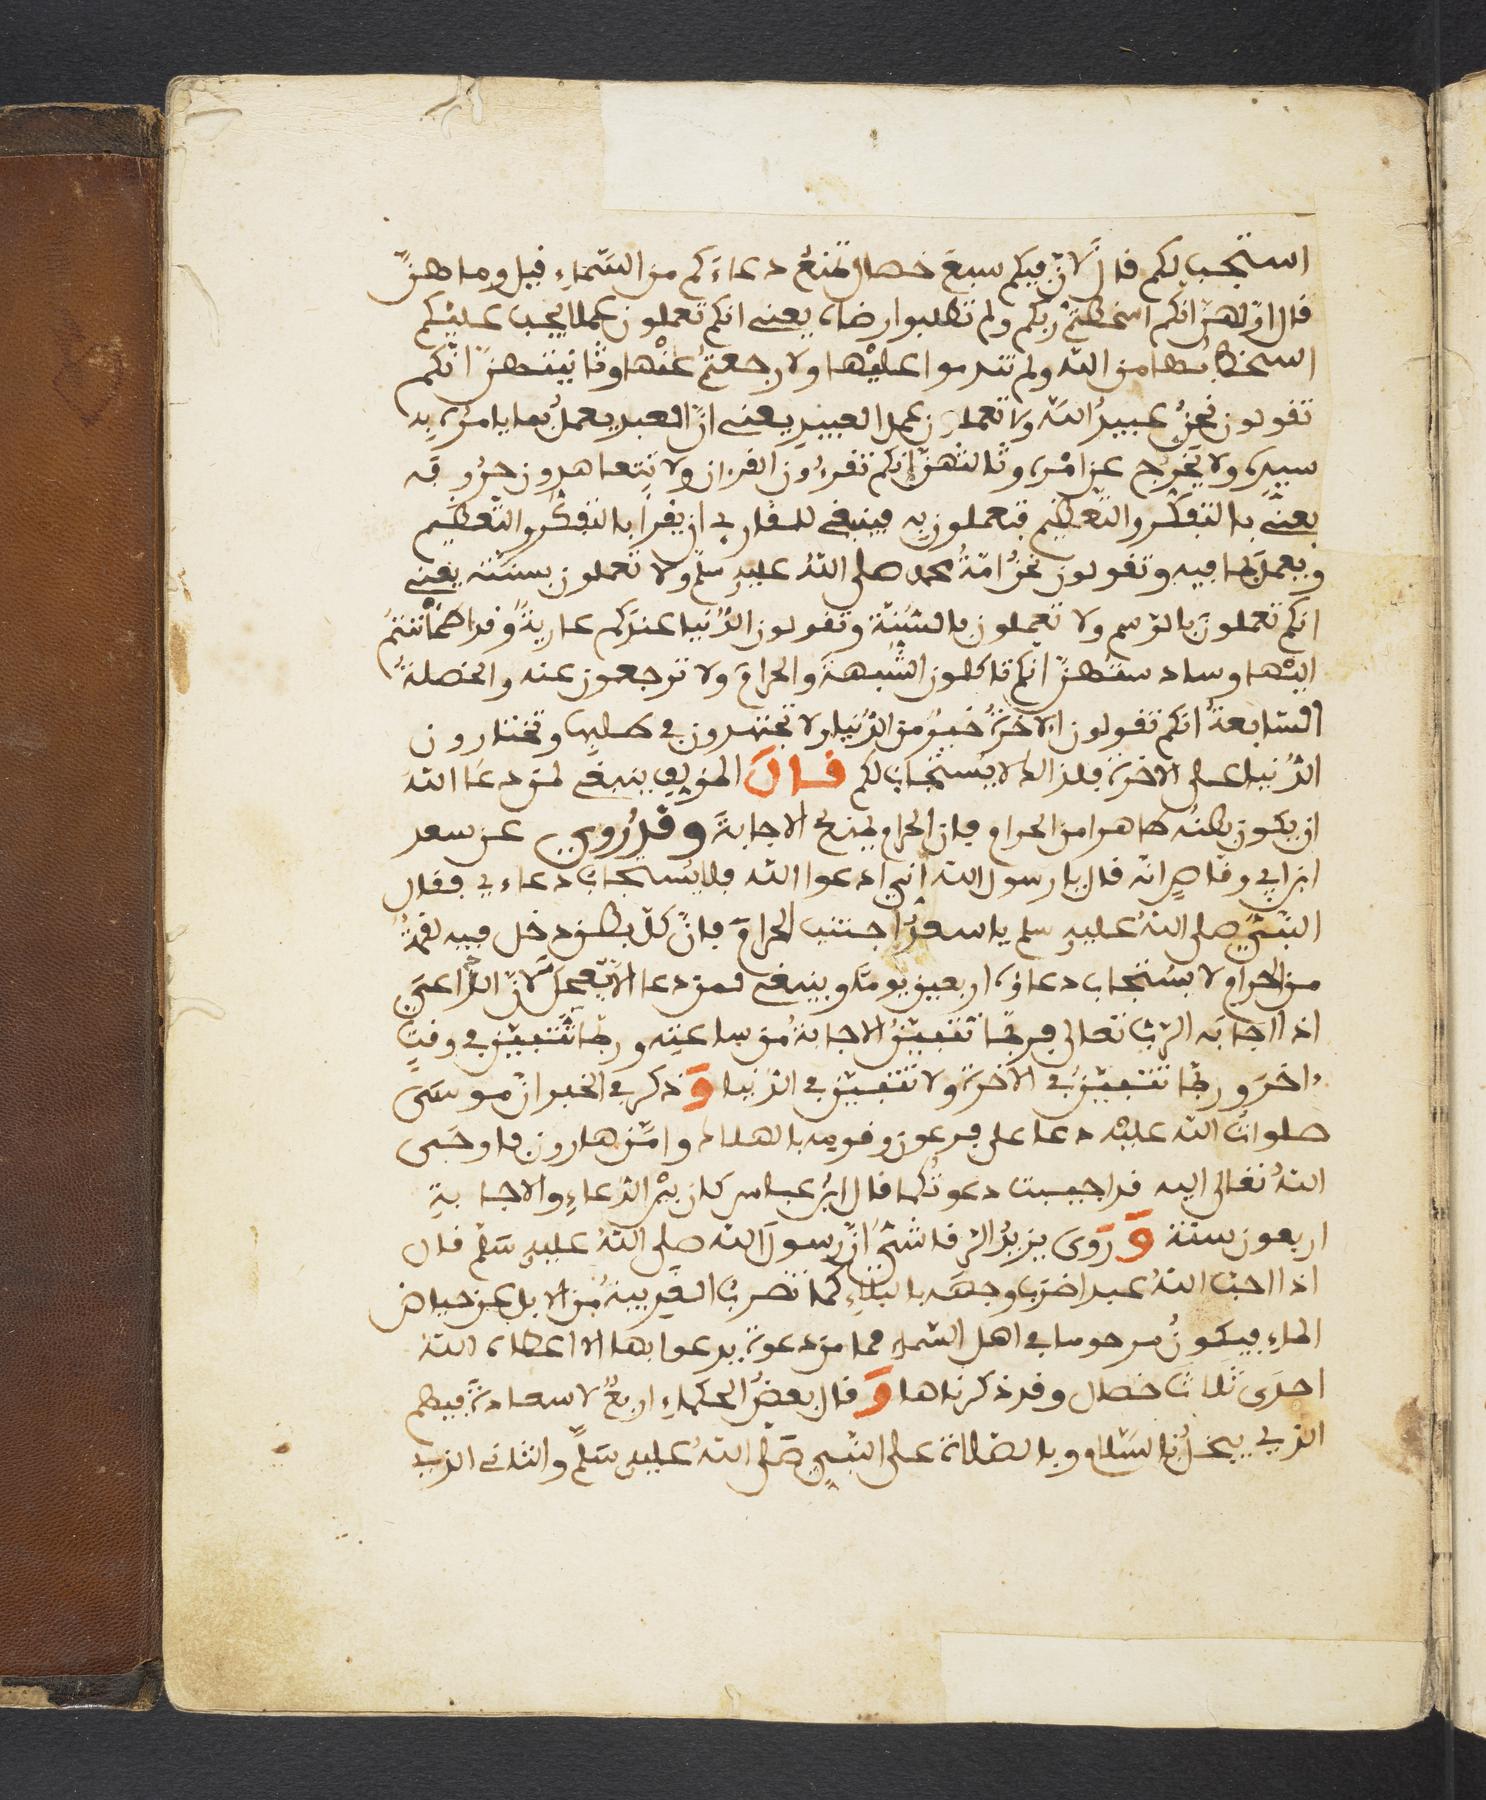 استجب لكم قال لانّ فيكم سبع خصال تمنع دعاءكم من السّماء فيل وما هنّ
قال اوّلهنّ انكم اسخطتم ربّكم ولم تطلبوا رضاه يعنے انكم تعملون عملا يجب عليكم
السخط بها من الله ولم تندموا عليها ولا رجعتم عنها وثانيتهنّ انّكم
تقولون نحن عبيد الله ولا تعملون عمل العبيد يعنے انّ العبد يعمل بما يامره به
سيده ولا يخرج عن امره وثالثهنّ انكم تقرءون القرءان ولا تتعاهدون حروفه
يعنے بالتفكّر والتّعظيم فتعملون به فينبغے للقارے ان يقرا بالتفكّر والتّعظيم
ويعمل بما فيه وتقولون نحن امّة محمد صلى الله عليه وسلم ولا تعملون بسنّته يعنے
انكم تعملون بالرّسم ولا تعملون بالسّنّة وتقولون الدّنيا عندكم عارية وقد اطمأننتم
اليها وسادستهنّ انّكم تاكلون الشّبهة والحرام ولا ترجعون عنه والخصلة
السّابعة انكم تقولون الاخرة خير من الدّنيا ولا تجتهدون في طلبها وتختارون
الدّنيا على الاخرة فلذالك لا يستجاب لكم قال المؤلف ينبغے لمن دعا الله
ان يكون بطنه طاهرا من الحرام فان الحرام يمنع الاجابة وقد روي عن سعد
ابن ابي وقاص انّه قال يا رسول الله اني ادعوا الله فلا يستجاب دعاءي فقال
النّبيّ صلى الله عليه وسلم يا سعد اجتنب الحرام فانّ كلّ بطن دخل فيه لقمة
من الحرام لا يستجاب دعاؤه اربعين يوما وينبغے لمن دعا الّا يعجل لانّ الدّاعي
اذا اجابه الربّ تعالى فربّما تتبيّن الاجابة من ساعته وربّما تتبيّن في وقت
ءاخر وربّما تتبيّن في الاخرة ولا تتبيّن في الدّنيا وذكر في الخبر انّ موسى
صلوات الله عليه دعا على فرعون وقومه بالهلاك وامّن هارون فاوحى
الله تعالى اليه قد اجيبت دعوتكما قال ابن عباس كان بين الدّعاء والاجابة
اربعون سنة وروى يزيد الرّقاشي انّ رسول الله صلى الله عليه وسلم قال
اذا احبّ الله عبدا ضرب وجهه بالبلاء كما تضرب الغريبة من الابل عن حياض
الماء فيكون مرحوما في اهل السّماء فما من دعوة يدعوا بها الا اعطاه الله
احدى ثلاث خصال وقد ذكرناها وقال بعض الحكماء اربع لا سعادة فيهم
الذي يبخل بالسّلام وبالصّلاة على النّبيّ صلّى الله عليه وسلّم والثاني الذي